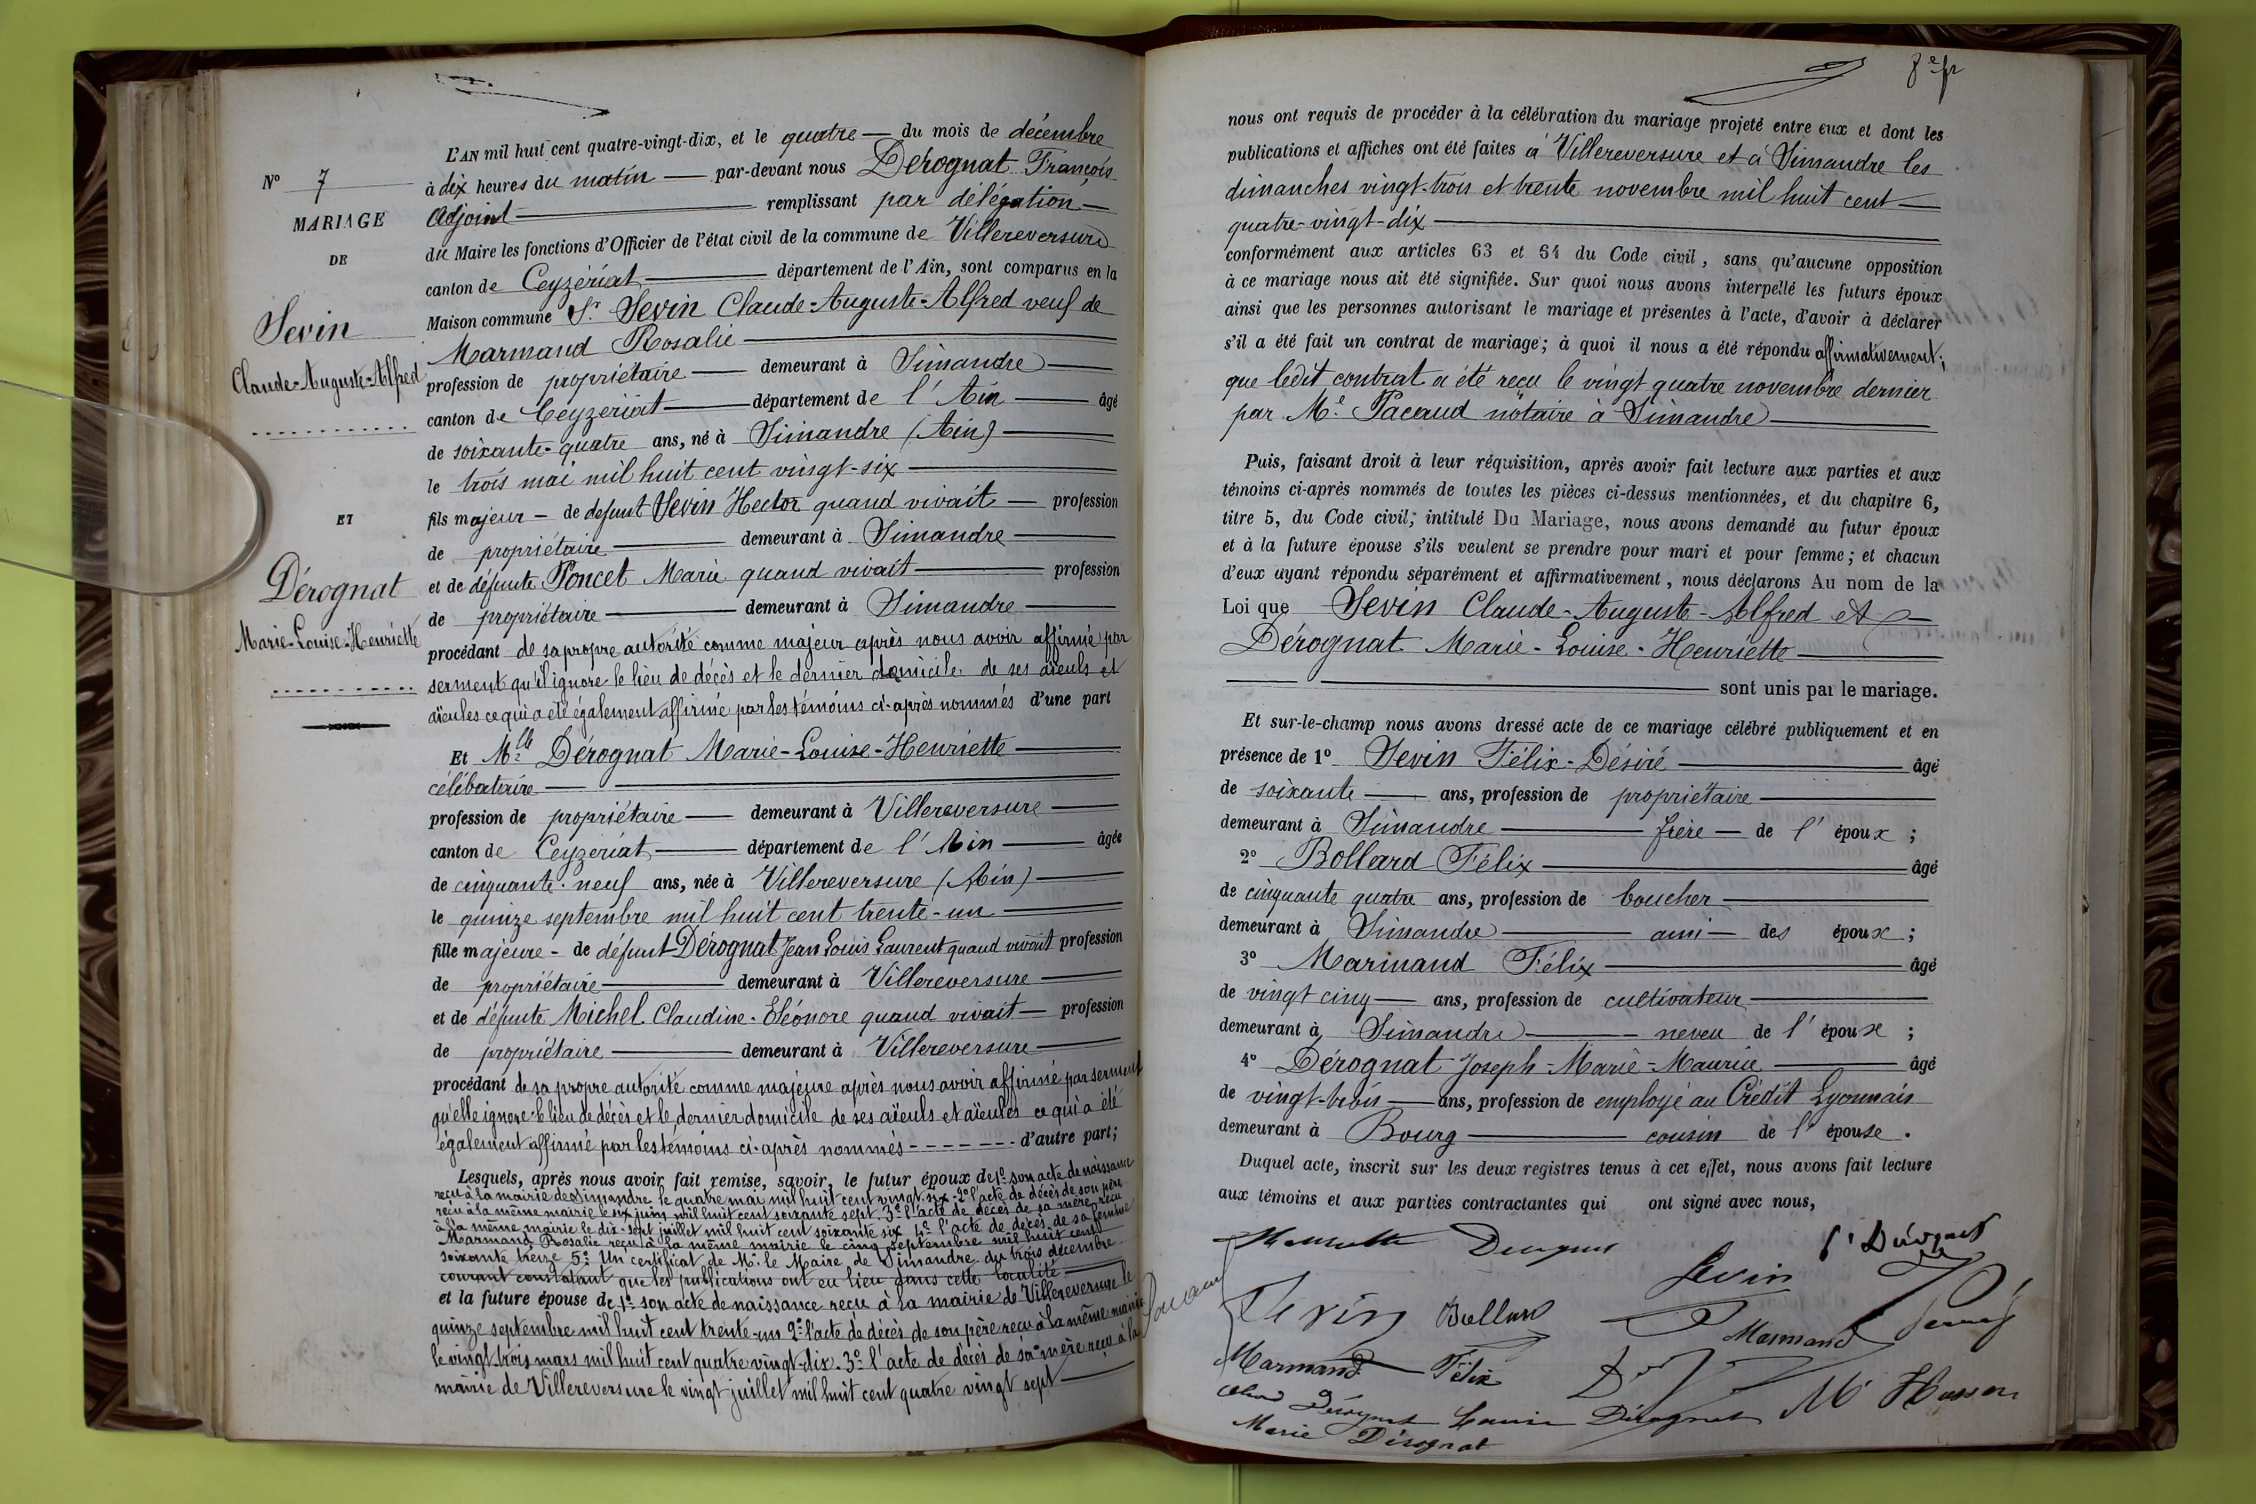 N° 7
MARIAGE
DE
Sevin
Claude-Auguste-Alfred
ET
Dérognat
Marie-Louise-Henriette
L'AN mil huit cent quatre-vingt-dix, et le quatre du mois de décembre
à dix heures du matin par-devant nous Dérognat François
Adjoint remplissant par délégation
du Maire les fonctions d'Officier de l'état civil de la commune de Villereversure
canton de Ceyzériat département de l'Ain, sont comparus en la
Maison commune Sr Sevin Claude-Auguste-Alfred veuf de
Marmand Rosalie
profession de propriétaire demeurant à Simandre
canton de Ceyzériat département de l'Ain âgé
de soixante-quatre ans, né à Simandre (Ain)
le trois mai mil huit cent vingt-six
fils majeur - de defunt Sevin Hector quand vivait profession
de propriétaire demeurant à Simandre
et de défunte Poncet Marie quand vivait profession
de propriétaire demeurant à Simandre
procédant de sa propre autorité comme majeur après nous avoir affirmé par
serment qu'il ignore le lieu de décès et le dernier domicile de ses aïeuls et
aïeules ce qui a été également affirmé par les témoins ci-après nommés d'une part
Et Mlle Dérognat Marie-Louise-Henriette
célibataire
profession de propriétaire demeurant à Villereversure
canton de Ceyzériat département de l'Ain âgée
de cinquante-neuf ans, née à Villereversure (Ain)
le quinze septembre mil huit cent trente-un
fille majeure - de défunt Dérognat Jean Louis Laurent quand vivait profession
de propriétaire demeurant à Villereversure
et de défunte Michel Claudine-Eléonore quand vivait profession
de propriétaire demeurant à Villereversure
procédant de sa propre autorité comme majeure après nous avoir affirmé par serment
qu'elle ignore le lieu de décès et le dernier domicile de ses aïeuls et aïeules ce qui a été
également affirmé par les témoins ci-après nommés d'autre part;
Lesquels, après nous avoir fait remise, savoir, le futur époux de 1° son acte de naissance
reçu à la mairie de Simandre le quatre mai mil huit cent vingt-six - 2° l'acte de décès de son père
reçu à la même mairie le six juin mil huit cent soixante sept. 3° l'acte de décès de sa mère reçu
à la même mairie le dix-sept juillet mil huit cent soixante six 4° l'acte de décès de sa femme
Marmand Rosalie reçu à la même mairie le cinq septembre mil huit cent
soixante treize 5° Un certificat de Mr le Maire de Simandre du trois décembre
courant constatant que les publications ont eu lieu dans cette localité
et la future épouse de 1° son acte de naissance reçu à la mairie de Villereversure le
quinze septembre mil huit cent trente-un 2° l'acte de décès de son père reçu à la même mairie
le vingt trois mars mil huit cent quatre vingt-dix. 3° l'acte de décès de sa mère reçu à la
mairie de Villereversure le vingt juillet mil huit cent quatre vingt sept
nous ont requis de procéder à la célébration du mariage projeté entre eux et dont les
publications et affiches ont été faites à Villereversure et à Simandre les
dimanches vingt-trois et trente novembre mil huit cent
quatre-vingt-dix
conformément aux articles 63 et 64 du Code civil, sans qu'aucune opposition
à ce mariage nous ait été signifiée. Sur quoi nous avons interpellé les futurs époux
ainsi que les personnes autorisant le mariage et présentes à l'acte, d'avoir à déclarer
s'il a été fait un contrat de mariage; à quoi il nous a été répondu affirmativement;
que ledit contrat a été reçu le vingt quatre novembre dernier
par Me Pacaud notaire à Simandre
Puis, faisant droit à leur réquisition, après avoir fait lecture aux parties et aux
témoins ci-après nommés de toutes les pièces ci-dessus mentionnées, et du chapitre 6,
titre 5, du Code civil, intitulé Du Mariage, nous avons demandé au futur époux
et à la future épouse s'ils veulent se prendre pour mari et pour femme; et chacun
d'eux ayant répondu séparément et affirmativement, nous déclarons Au nom de la
Loi que Sevin Claude-Auguste-Alfred et
Dérognat Marie-Louise-Henriette
sont unis par le mariage.
Et sur-le-champ nous avons dressé acte de ce mariage célébré publiquement et en
présence de 1° Sevin Félix-Désiré âgé
de soixante ans, profession de propriétaire
demeurant à Simandre frère de l'époux;
2° Bolleard Félix âgé
de cinquante quatre ans, profession de boucher
demeurant à Simandre ami des époux;
3° Marmand Félix âgé
de vingt cinq ans, profession de cultivateur
demeurant à Simandre neveu de l'époux;
4° Dérognat Joseph-Marie-Maurice âgé
de vingt-trois ans, profession de employé au Crédit Lyonnais
demeurant à Bourg cousin de l'épouse.
Duquel acte, inscrit sur les deux registres tenus à cet effet, nous avons fait lecture
aux témoins et aux parties contractantes qui ont signé avec nous,
Sevin
Sevin
Marmand
Marmand Félix
Dérognat Louise Dérognat
Marie Dérognat